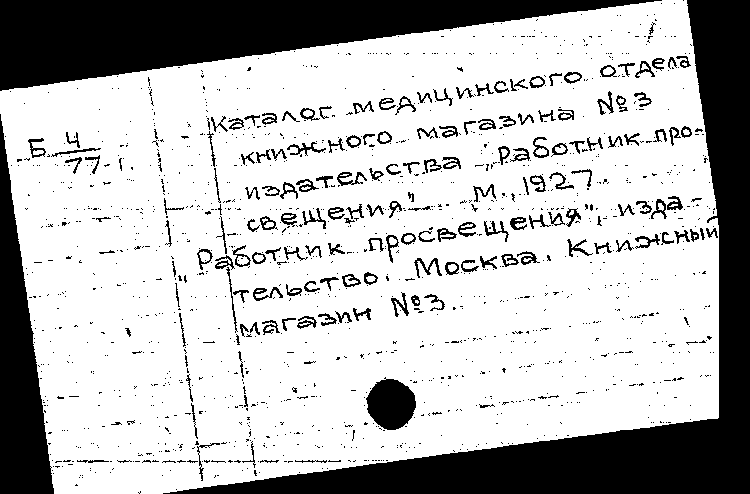 Каталог медицинского отдела
книжного магазина №3
издательства „Работник про-
свещения“ М., 1927.
„Работник просвещения“, изда-
тельство. Москва. Книжный
магазин №3.
Б 4
77